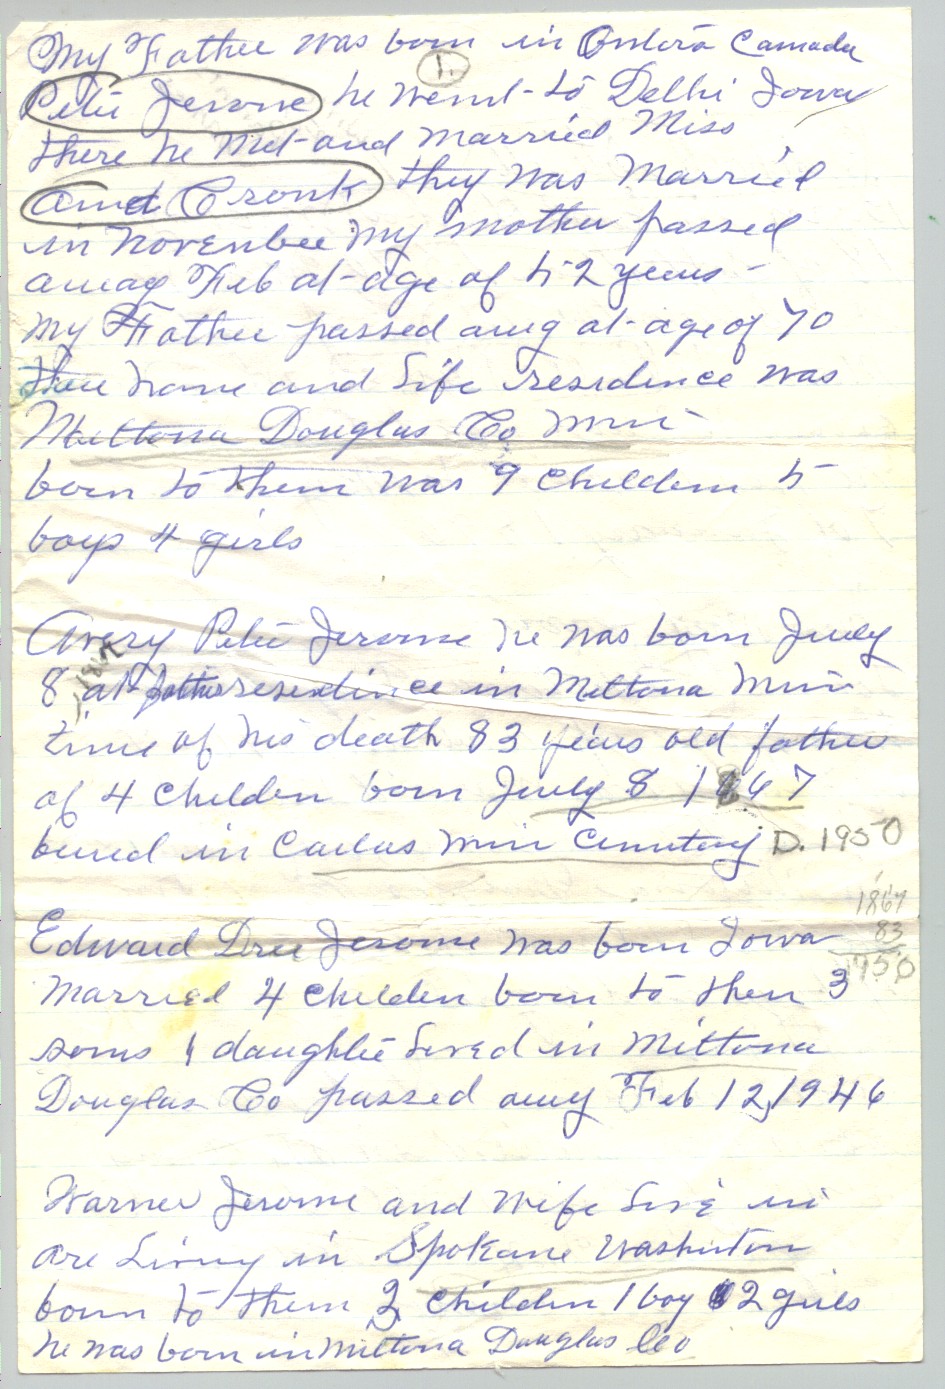 My Father was born in Ontora Camada
1.
Petie Jerome he went to Delhi Iowa
there he Met and Married Miss
Cronk they was Married
in Novenber My mother passed
away Feb at age of 52 years
My Father passed awy at age of 70
there home and Life resedence was
Miltona Douglas Co Minn
born to them was 9 Children 5
boys 4 girls
Avery Petie Jerome he was born July
8 at father resesedince in Miltona Minn
time of his death 83 years old father
of 4 Childen born July 8 1867
buried in Carlos Minn Cemetary D. 1950
1867
Edward Jerome was born Iowa 83
1950
Married 4 Childen born to then 3
sons 1 daughte Lived in Miltona
Douglas Co passed awy Feb 12, 1946
Warner Jerome and Wife Live in
are Living in Spokane Washinton
born to them 3 Childen 1 boy 2 girls
he was born in Miltona Douglas Co